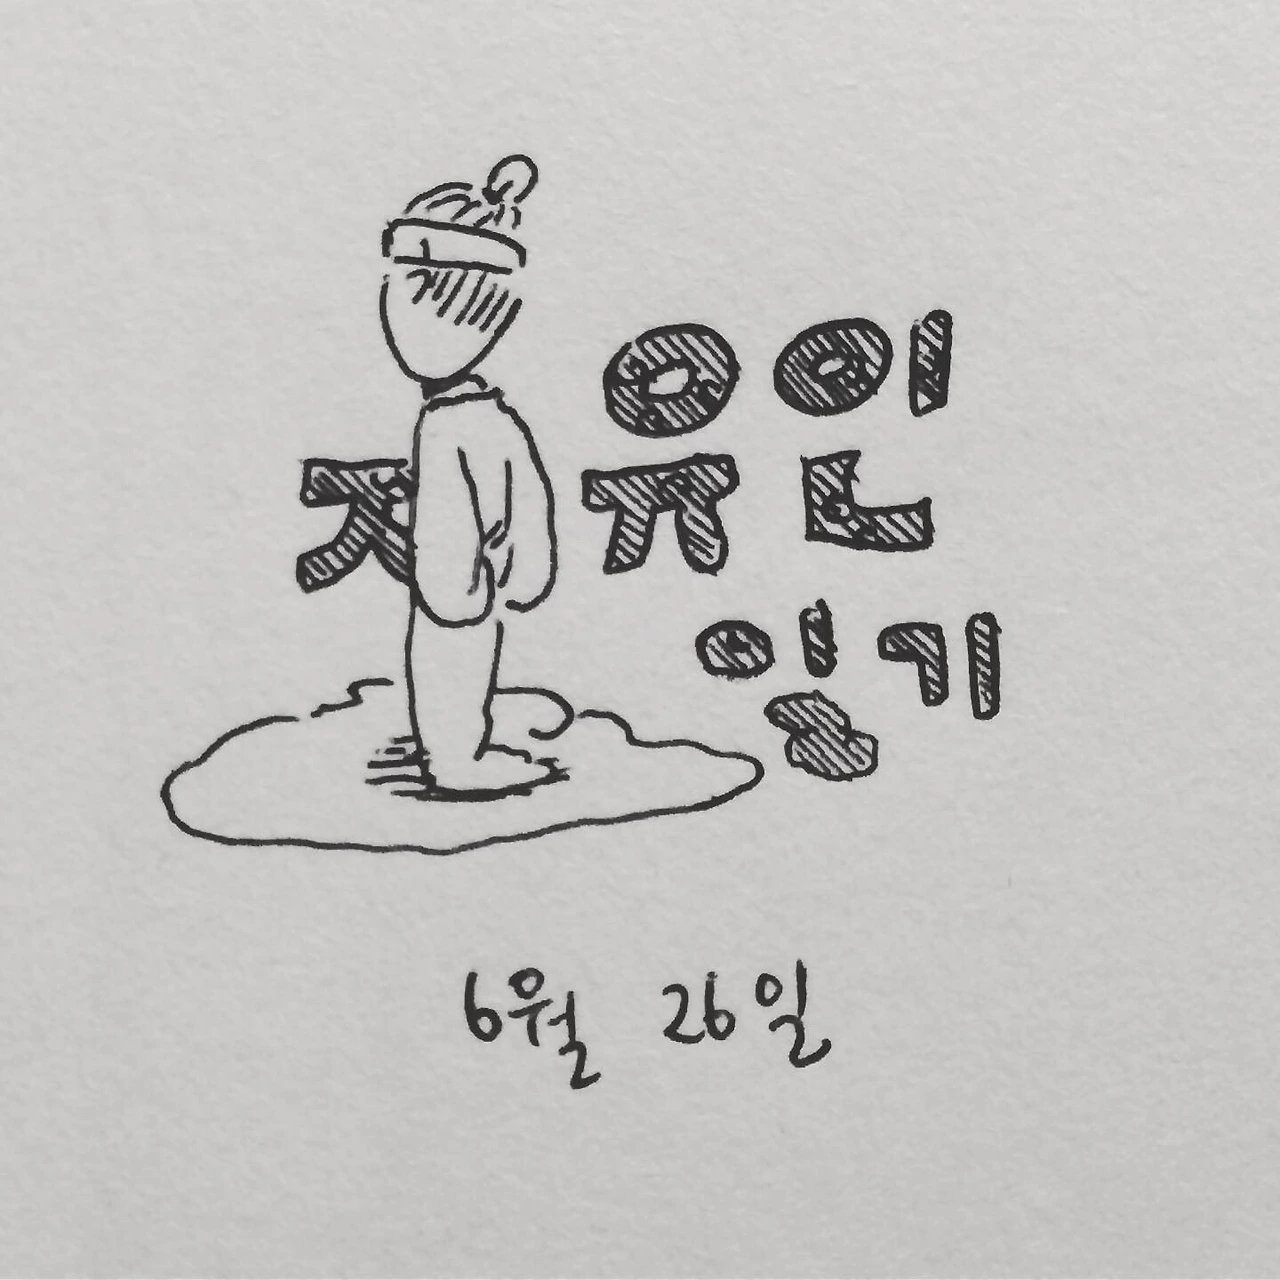 자유인
일기
6월 26일